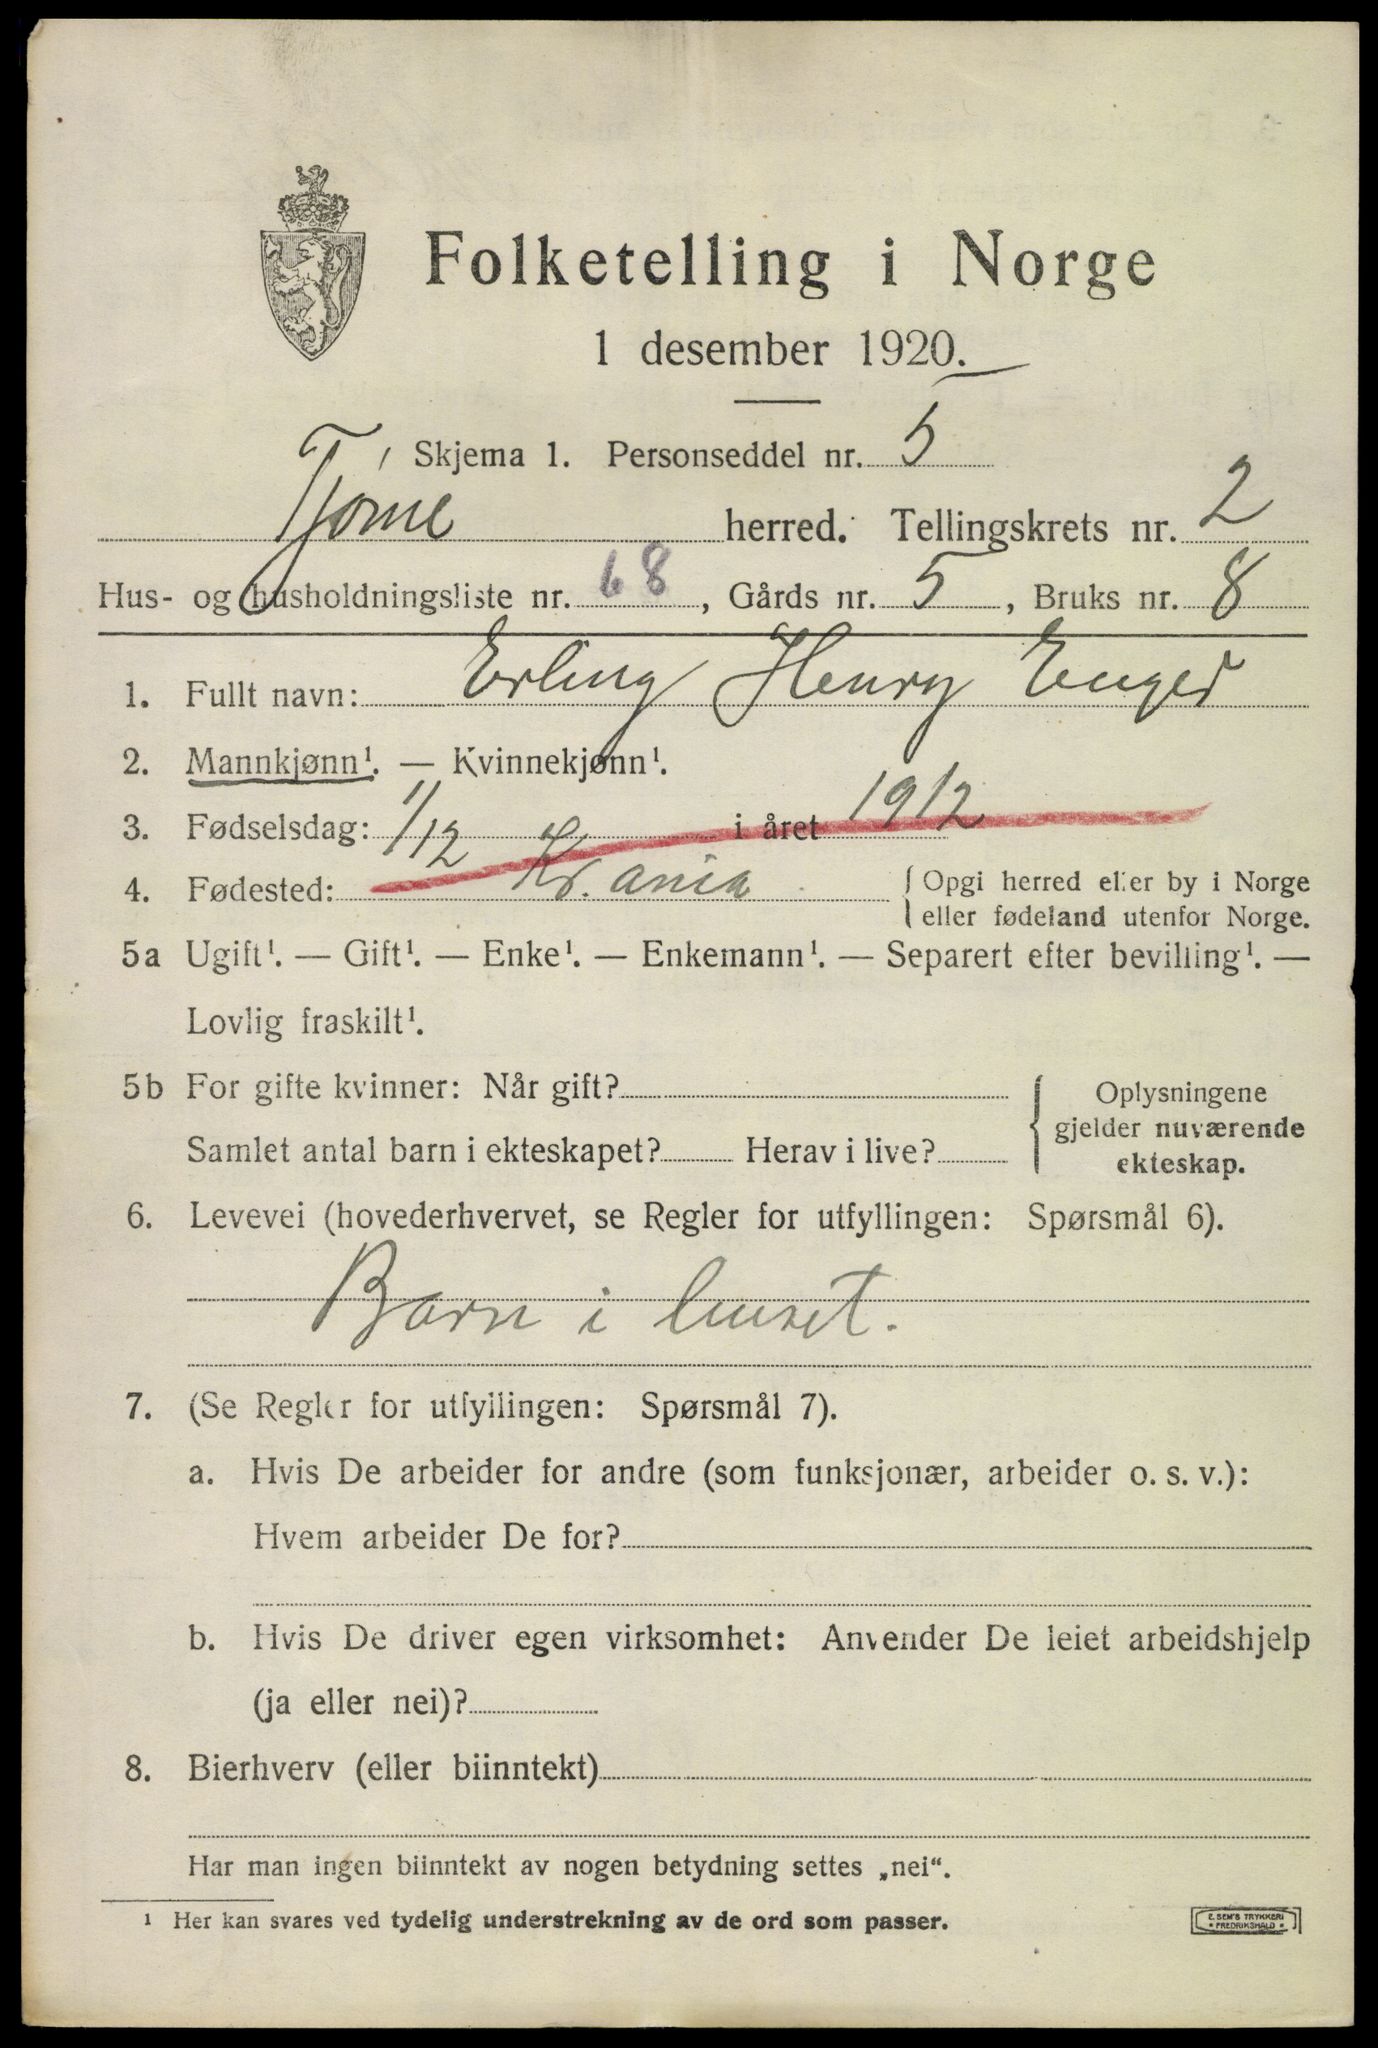 Folketelling i Norge
1 desember 1920.
Skjema 1. Personseddel nr. 5
Tjøme herred. Tellingskrets nr. 2
Hus- og husholdningsliste nr. 68, Gårds nr. 5, Bruks nr. 8
1. Fullt navn: Erling Henry Enger
2. Mannkjønn¹. — Kvinnekjønn¹.
3. Fødselsdag: 1/12 i året 1912
4. Fødested: Kr.ania { Opgi herred eller by i Norge
eller fødeland utenfor Norge.
5a Ugift¹. — Gift¹. — Enke¹. — Enkemann¹. — Separert efter bevilling¹. —
Lovlig fraskilt¹.
5b For gifte kvinner: Når gift?
Samlet antal barn i ekteskapet? Herav i live?
{ Oplysningene
gjelder nuværende
ekteskap.
6. Levevei (hovederhvervet, se Regler for utfyllingen: Spørsmål 6).
Barn i huset.
7. (Se Regler for utfyllingen: Spørsmål 7).
a. Hvis De arbeider for andre (som funksjonær, arbeider o. s. v.):
Hvem arbeider De for?
b. Hvis De driver egen virksomhet: Anvender De leiet arbeidshjelp
(ja eller nei)?
8. Bierhverv (eller biinntekt)
Har man ingen biinntekt av nogen betydning settes „nei“.
¹ Her kan svares ved tydelig understrekning av de ord som passer.
E. SEM'S TRYKKERI
• FREDRIKSHALD •